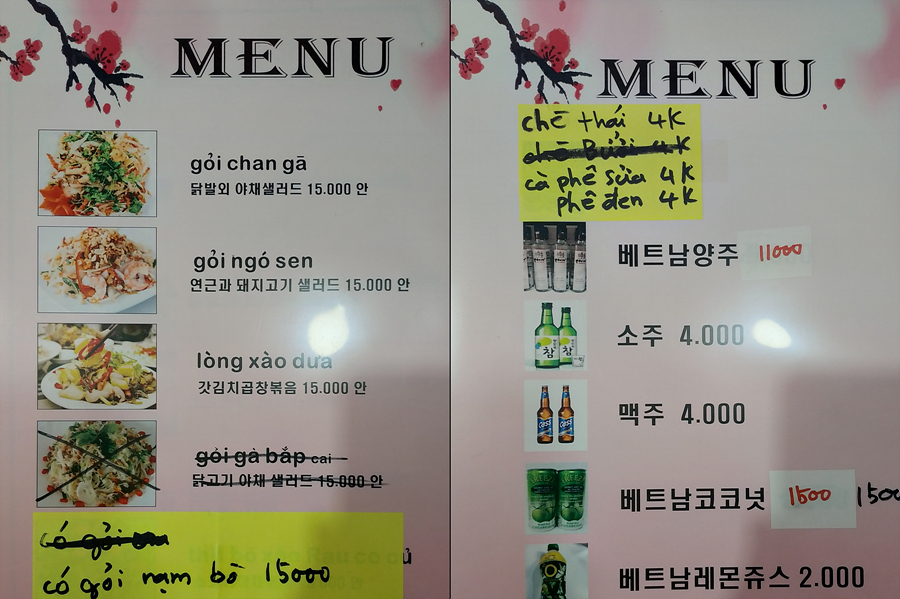 MENU
gỏi chan gā
닭발외 야채샐러드 15.000 안
gỏi ngó sen
연근과 돼지고기 샐러드 15.000 안
lòng xào dưa
갓김치곱창볶음 15.000 안
gỏi gà bắp cai
닭고기 야채 샐러드 15.000 안
có gỏi
có gỏi nạm bò 15000
MENU
chē thái 4K
chē Bưởi 4K
cà phê sữa 4K
phê đen 4K
베트남양주 11000
소주 4.000
참
맥주 4.000
Cass
베트남코코넛 1500 1500
베트남레몬쥬스 2.000